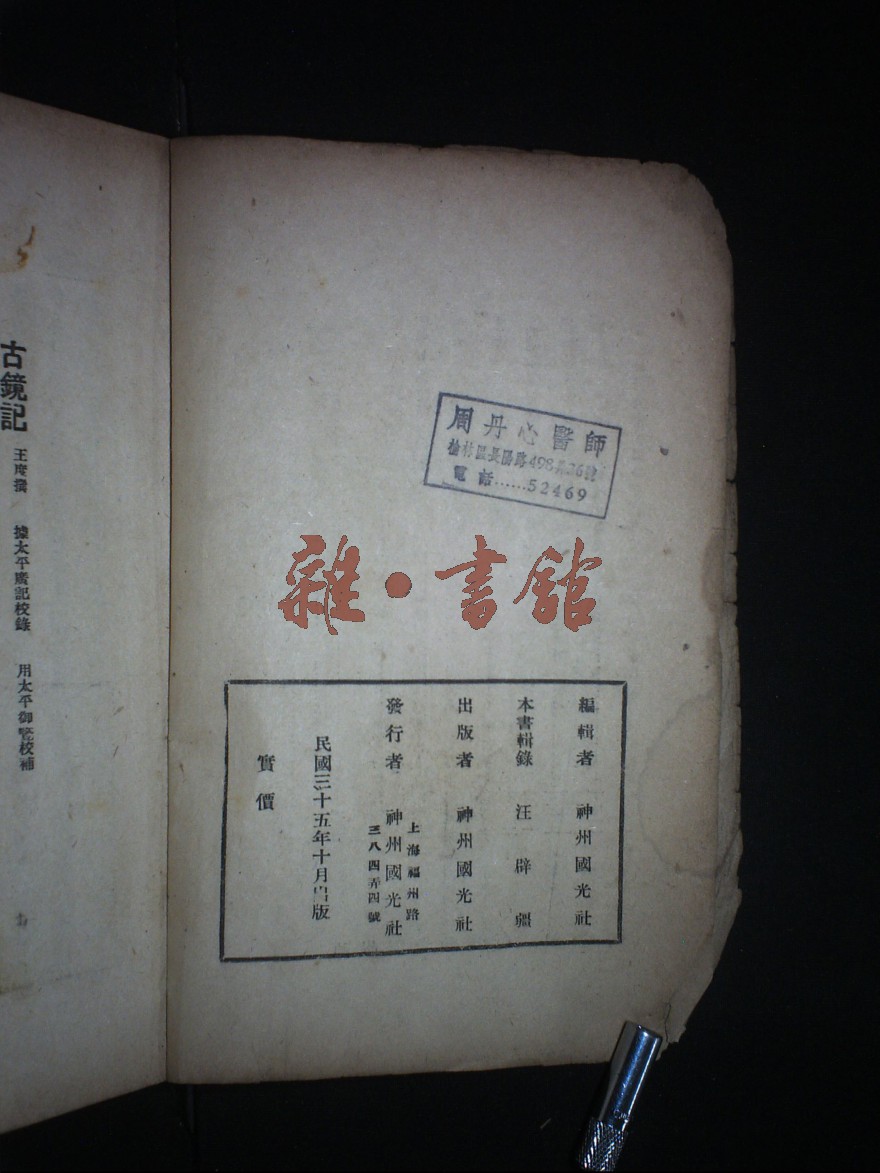 周丹心醫師
榆林區長陽路498弄26號
電話......52469
雜·書館
編輯者 神州國光社
本書輯錄 汪辟疆
出版者 神州國光社
發行者 神州國光社
上海福州路
三八四弄四號
民國三十五年十月出版
實價
古鏡記 王度撰 據太平廣記校錄 用太平御覽校補